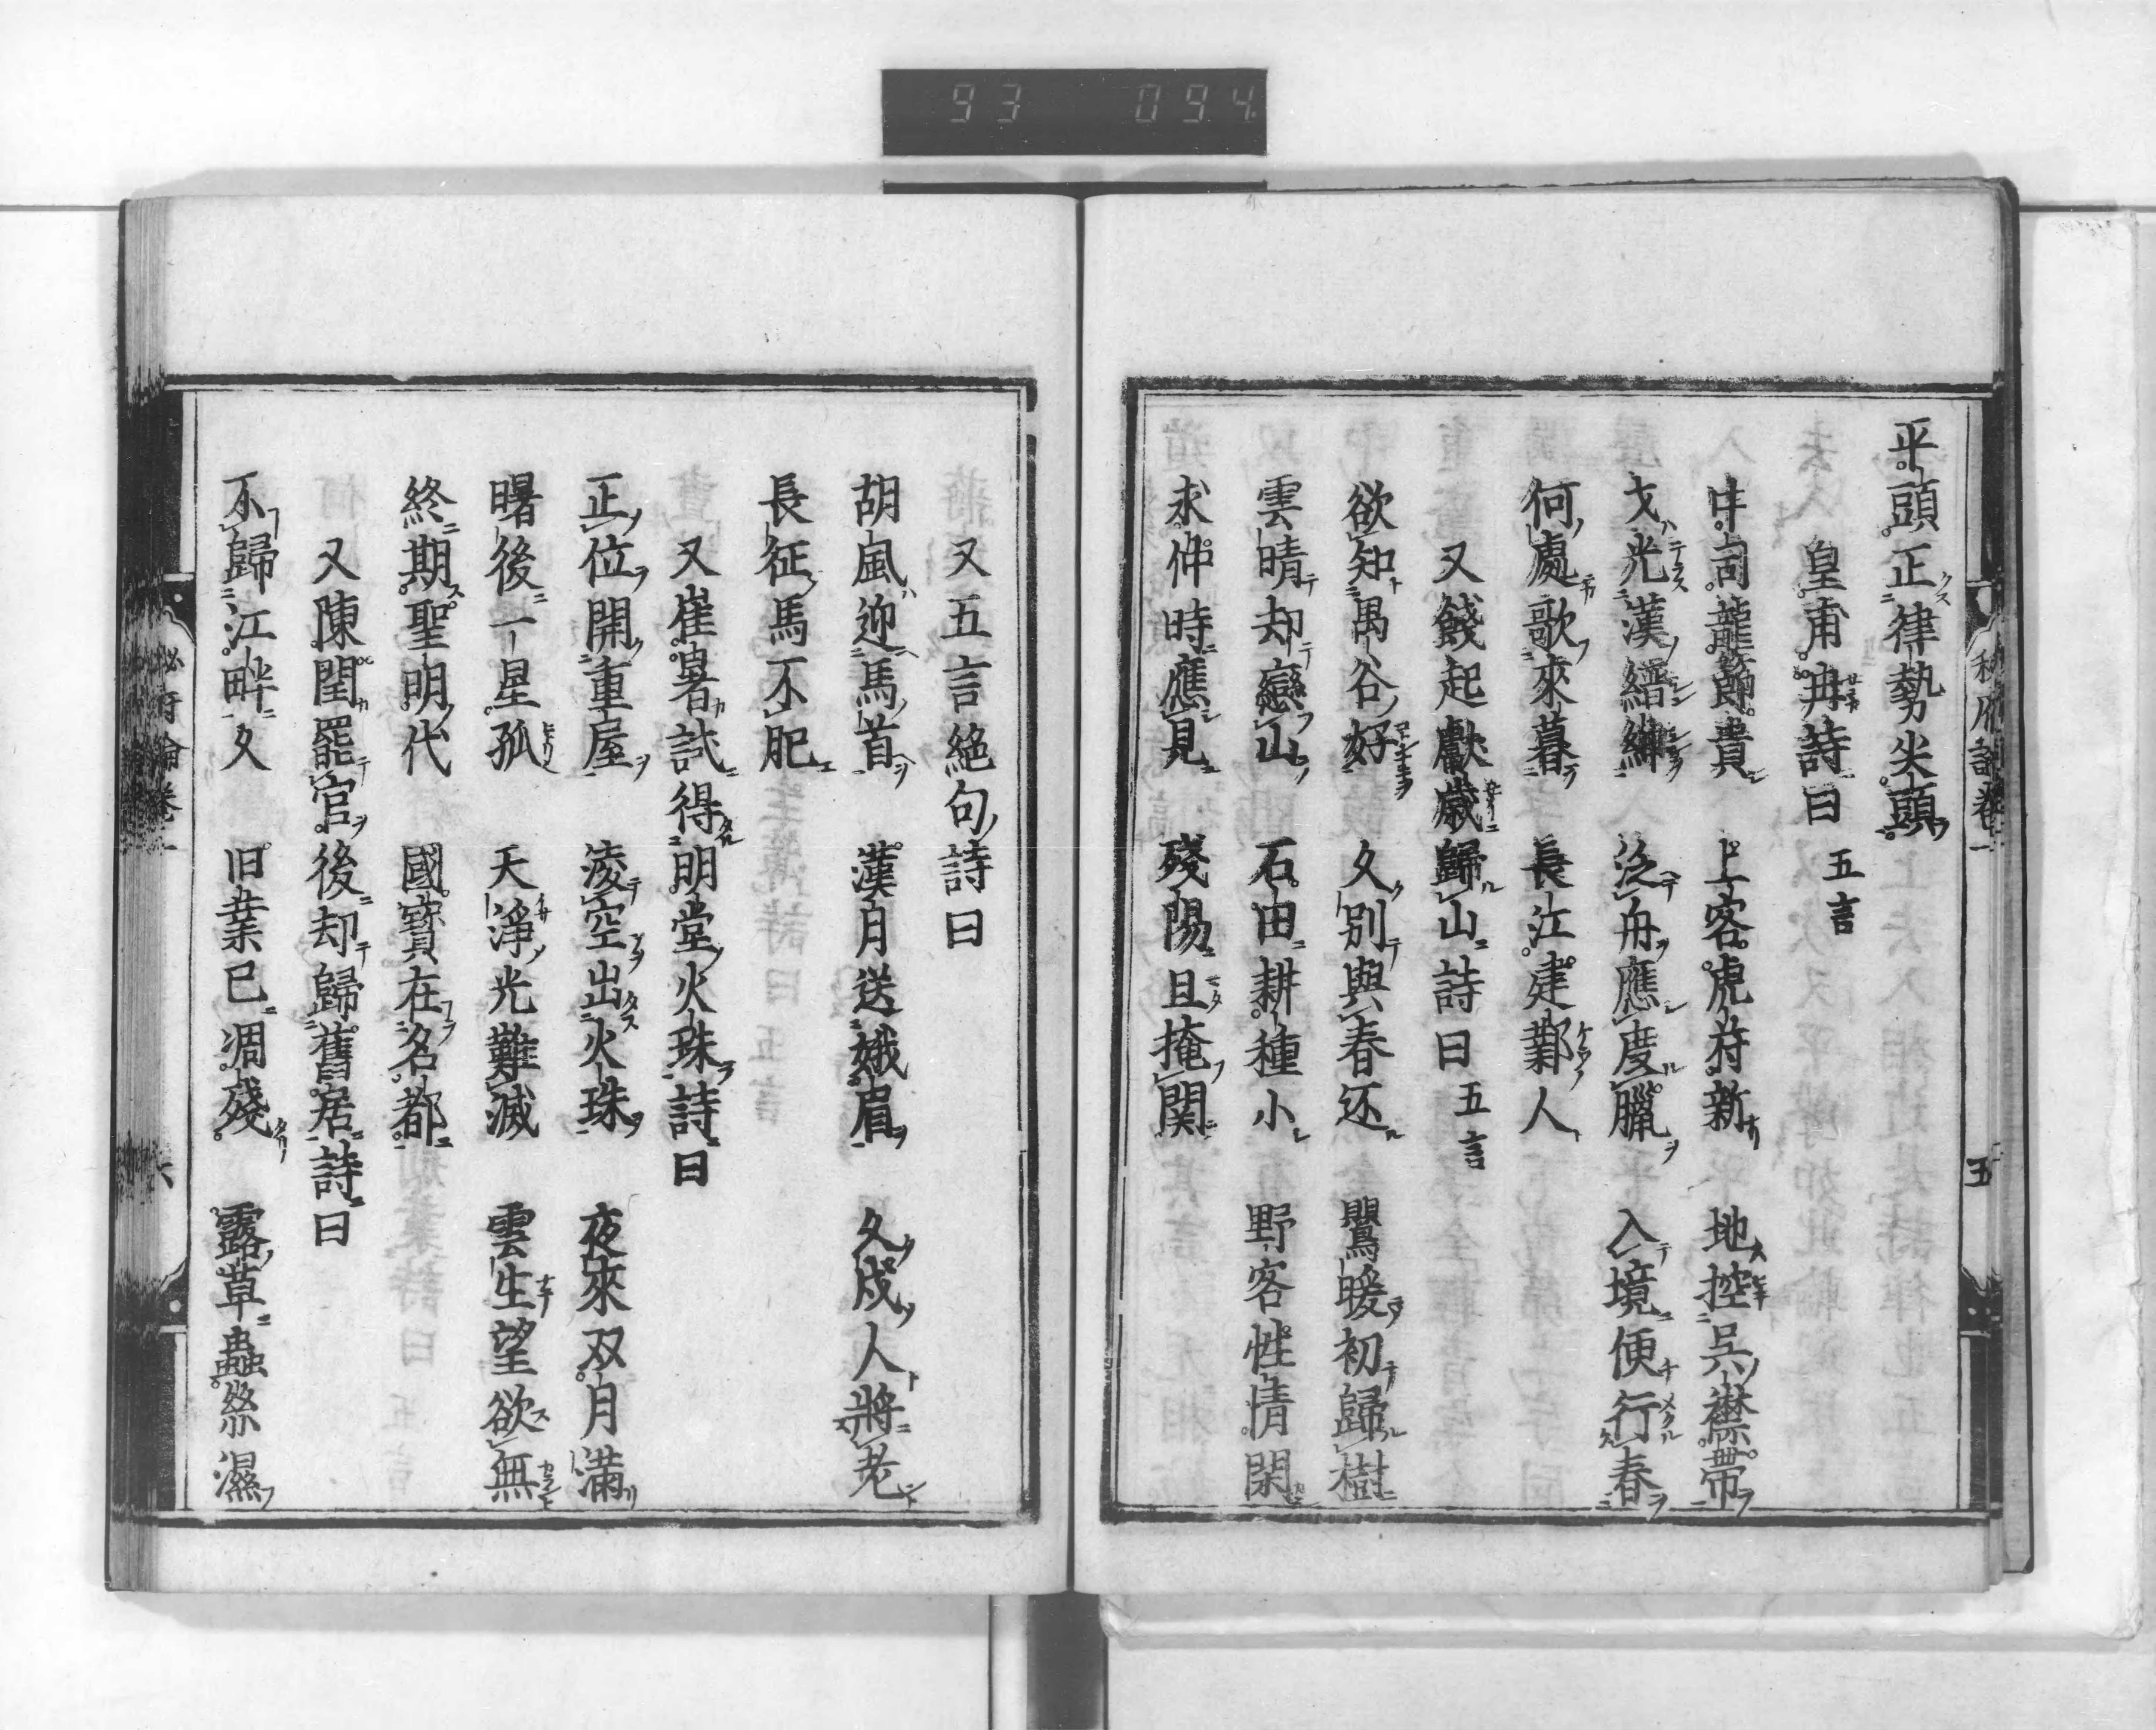 93 094.
平頭正律勢尖頭
皇甫冉詩曰 五言
中司龍節貴 上客虎符新 地控呉襟帯
才光漢縉紳 泛舟應度臘 入境便行春
何處歌來暮 長江建鄴人
又餞起獻歲歸山詩曰 五言
欲知愚谷好 久別與春还 鸎暖初歸樹
雲晴却戀山 石田耕種小 野客性情閑
求仲時應見 殘陽且掩関
秘府論卷一 五
又五言絶句詩曰
胡風迎馬首 漢月送娥眉 久戍人將老
長征馬不肥
又崔曙試得明堂火珠詩曰
正位開重屋 淩空出火珠 夜來双月滿
曙後一星孤 天淨光難滅 雲生望欲無
終期聖明代 國寳在名都
又陳閏罷官後却歸舊居詩曰
不歸江畔久 旧業已凋殘 露草蟲絲濕
秘府論卷一 六